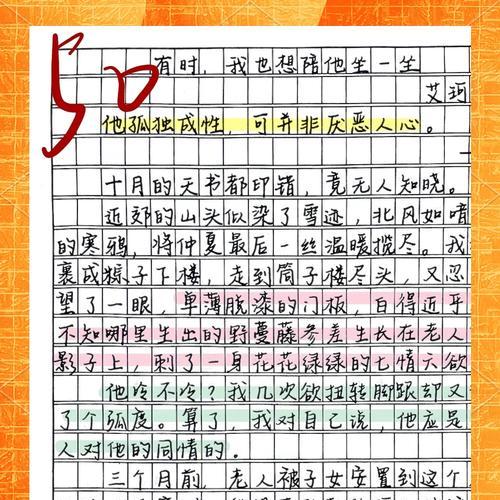 50
有时，我也想陪他坐一坐
艾珂
他孤独成性，可并非厌恶人心。
一
十月的天书都印错，竟无人知晓。
近郊的山头似染了雪迹，北风如喑
的寒鸦，将仲夏最后一丝温暖揽尽。我
裹成粽子下楼，走到筒子楼尽头，又忍
望了一眼，单薄脱漆的门板，白得近乎
不知哪里生出的野蔓藤参差生长在老人
影子上，刺了一身花花绿绿的七情六欲
他冷不冷？我几次欲扭转脚跟却又
了个弧度。算了，我对自己说，他应是
人对他的同情的。
三个月前，老人被子女安置到这个